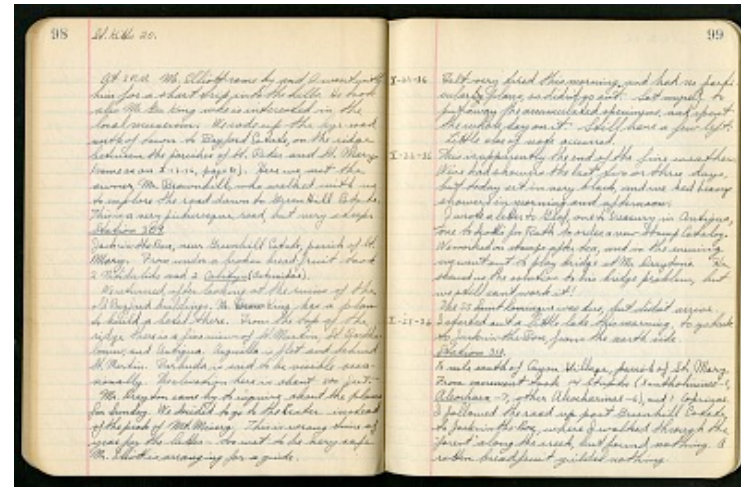 98
St. Kitts 20.
At 2 P.M. Mr. Elliott came by and I went with
him for a short trip into the hills. He took
also Mr. Geo King who is interested in the
local museum. We rode up the bye-road
north of town to Bayford Estate, on the ridge
between the parishes of St. Peter and St. Mary
(same as on page). Here we met the
owner, Mr. Brownhill, who walked with us
to explore the road down to Greenhill Estate.
This is a very picturesque road, but very steep.
Station 309
Jack-in-the-Box, near Greenhill Estate, parish of St.
Mary. From under a broken breadfruit took
2 Nitidulids and 2
We returned, after looking at the ruins of the
old Bayford buildings. Mr. King has a plan
to build a hotel there. From the top of the
ridge there is a fine view of St. Martin, St. Barthо-
lomew, and Antigua. Anguilla is flat and behind
St. Martin. Barbuda is said to be visible occa-
sionally. The elevation here is about feet.
Mr. Drayton came by to inquire about the plans
for Sunday. We decided to go to the crater instead
of the peak of Mt. Misery. This is wrong time of
year for the latter - too wet to be very safe.
Mr. Elliott is arranging for a guide.
99
Felt very tired this morning, and had no parti-
cular plans, so didn't go out. Set myself to
put away the accumulated specimens, and spent
the whole day on it. Still have a few left.
Little else of note occurred.
This is apparently the end of the fine weather.
We've had showers the last two or three days,
but today set in very black, and we had heavy
showers in morning and afternoon.
I wrote a letter to Olof, one to Treasury in Antigua,
one to for Ruth to order a new Stamp Catalog.
We worked on stamps after tea, and in the evening
we went out to play bridge at Mr. Drayton's. He
showed us the solution to his bridge problem, but
we still can't work it!
The was due, but didn't arrive.
I started out a little late this morning, to go back
to Jack-in-the-Box, from the north side.
Station 310.
½ mile south of Cayon Village, parish of St. Mary.
From excrement took 14 Staphs
and
I followed the road up past Greenhill Estate
to Jack-in-the-Box, where I walked through the
forest along the creek, but found nothing. A
rotten breadfruit yielded nothing.